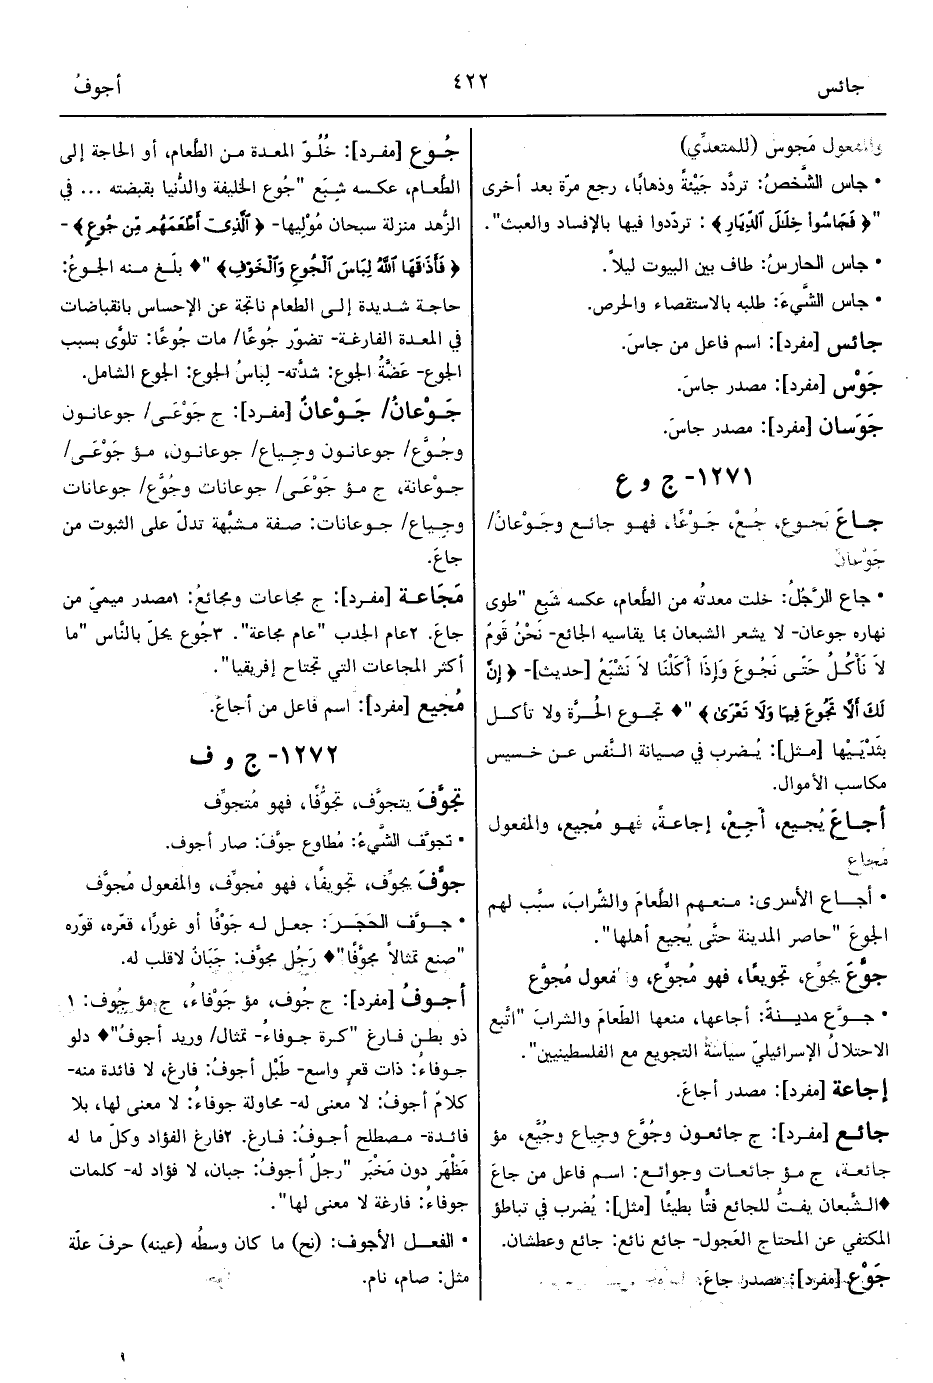 جائس
٤٢٢
أجوفُ
والمفعول مَجوس (للمتعدِّي)
• جاس الشَّخصُ: تردَّد جَيْئةً وذهابًا، رجع مرّة بعد أخرى
"﴿ فَجَاسُوا۟ خِلَٰلَ ٱلدِّيَارِ ﴾ : تردّدوا فيها بالإفساد والعبث".
• جاس الحارسُ: طاف بين البيوت ليلاً.
• جاس الشَّيءَ: طلبه بالاستقصاء والحرص.
جائس [مفرد]: اسم فاعل من جاسَ.
جَوْس [مفرد]: مصدر جاسَ.
جَوَسان [مفرد]: مصدر جاسَ.
١٢٧١- ج و ع
جـاعَ يَجـوع، جُـعْ، جَـوْعًا، فهـو جائـع وجَـوْعانُ/
جَوْعانٌ
• جاع الرَّجُلُ: خلت معدتُه من الطَّعام، عكسه شَبِع "طوى
نهاره جوعان- لا يشعر الشبعان بما يقاسيه الجائع- نَحْنُ قَومٌ
لاَ نَأْكُلُ حَتَّى نَجُوعَ وَإِذَا أَكَلْنَا لاَ نَشْبَعُ [حديث]- ﴿ إِنَّ
لَكَ أَلَّا تَجُوعَ فِيهَا وَلَا تَعْرَىٰ ﴾ "♦ تجـوع الحُـرَّة ولا تأكـل
بثَدْيَيْها [مثل]: يُضرب في صيانة النَّفس عن خسيس
مكاسب الأموال.
أجـاعَ يُجيـع، أَجِـعْ، إجاعـةً، فهـو مُجيع، والمفعول
مُجاع
• أجـاع الأسرى: منعهم الطَّعامَ والشَّرابَ، سبَّب لهم
الجوعَ "حاصر المدينة حتَّى يُجيع أهلها".
جوَّعَ يجوِّع، تجويعًا، فهو مُجوِّع، والمفعول مُجوَّع
• جـوَّع مدينـةً: أجاعها، منعها الطَّعامَ والشرابَ "اتَّبع
الاحتلالُ الإسرائيليّ سياسةَ التجويع مع الفلسطينيين".
إجاعة [مفرد]: مصدر أجاعَ.
جائـع [مفرد]: ج جائعـون وجُوَّع وجِياع وجُيَّع، مؤ
جائعـة، ج مـؤ جائعـات وجوائـع: اسـم فاعل من جاعَ
♦الشَّبعان يفـتّ للجائع فتًّا بطيئًا [مثل]: يُضرب في تباطؤ
المكتفي عن المحتاج العَجول- جائع نائع: جائع وعطشان.
جَوْع [مفرد]: مصدر جاعَ.
جُـوع [مفرد]: خُلُوّ المعدة مـن الطَّعام، أو الحاجة إلى
الطَّعام، عكسه شِبَع "جُوع الخليفة والدُّنيا بقبضته ... في
الزُّهد منزلة سبحان مُوْلِيها- ﴿ ٱلَّذِىٓ أَطْعَمَهُم مِّن جُوعٍ ﴾-
﴿ فَأَذَٰقَهَا ٱللَّهُ لِبَاسَ ٱلْجُوعِ وَٱلْخَوْفِ ﴾ "♦ بلَـغ منـه الجـوعُ:
حاجة شديدة إلـى الطعام ناتجة عن الإحساس بانقباضات
في المعدة الفارغـة- تضوّر جُوعًا/ مات جُوعًا: تلوَّى بسبب
الجوع- عَضَّةُ الجوع: شدَّته- لِباسُ الجوع: الجوع الشامل.
جَـوْعانُ/ جَـوْعانٌ [مفـرد]: ج جَوْعَـى/ جوعانون
وجُـوَّع/ جوعانـون وجِيـاع/ جوعانـون، مـؤ جَوْعَى/
جـوْعانة، ج مـؤ جَوْعَـى/ جوعانات وجُوَّع/ جوعانات
وجِيـاع/ جـوعانات: صـفة مـشبَّهة تدلّ على الثبوت من
جاعَ.
مَجَاعـة [مفرد]: ج مجاعات ومجائعُ: ١مصدر ميميّ من
جاعَ. ٢عام الجدب "عام مجاعة". ٣جُوع يحلّ بالنَّاس "ما
أكثر المجاعات التي تجتاح إفريقيا".
مُجيع [مفرد]: اسم فاعل من أجاعَ.
١٢٧٢- ج و ف
تجوَّفَ يتجوَّف، تجوُّفًا، فهو مُتجوِّف
• تجوَّف الشَّيءُ: مُطاوع جوَّفَ: صار أجوف.
جوَّفَ يجوِّف، تجويفًا، فهو مُجوِّف، والمفعول مُجوَّف
• جـوَّف الحَجَـرَ: جعل لـه جَوْفًا أو غورًا، قعّره، قوّره
"صنع تمثالاً مجوَّفًا"♦ رَجُل مجوَّف: جَبَانٌ لاقلب له.
أجـوفُ [مفرد]: ج جُوف، مؤ جَوْفاءُ، ج مؤ جُوف: ١
ذو بطـن فـارغ "كـرة جـوفاءُ- تمثال/ وريد أجوفُ"♦ دلو
جـوفاءُ: ذات قعرٍ واسع- طَبْل أجوفُ: فارغ، لا فائدة منه-
كلامٌ أجوفُ: لا معنى له- محاولة جوفاءُ: لا معنى لها، بلا
فائـدة- مـصطلح أجـوفُ: فـارغ. ٢فارغ الفؤاد وكلّ ما له
مَظْهَر دون مَخْبَر "رجلٌ أجوفُ: جبان، لا فؤاد له- كلمات
جوفاءُ: فارغة لا معنى لها".
• الفعـل الأجـوف: (نح) ما كان وسطُه (عينه) حرفَ علّة
مثل: صام، نام.
٩